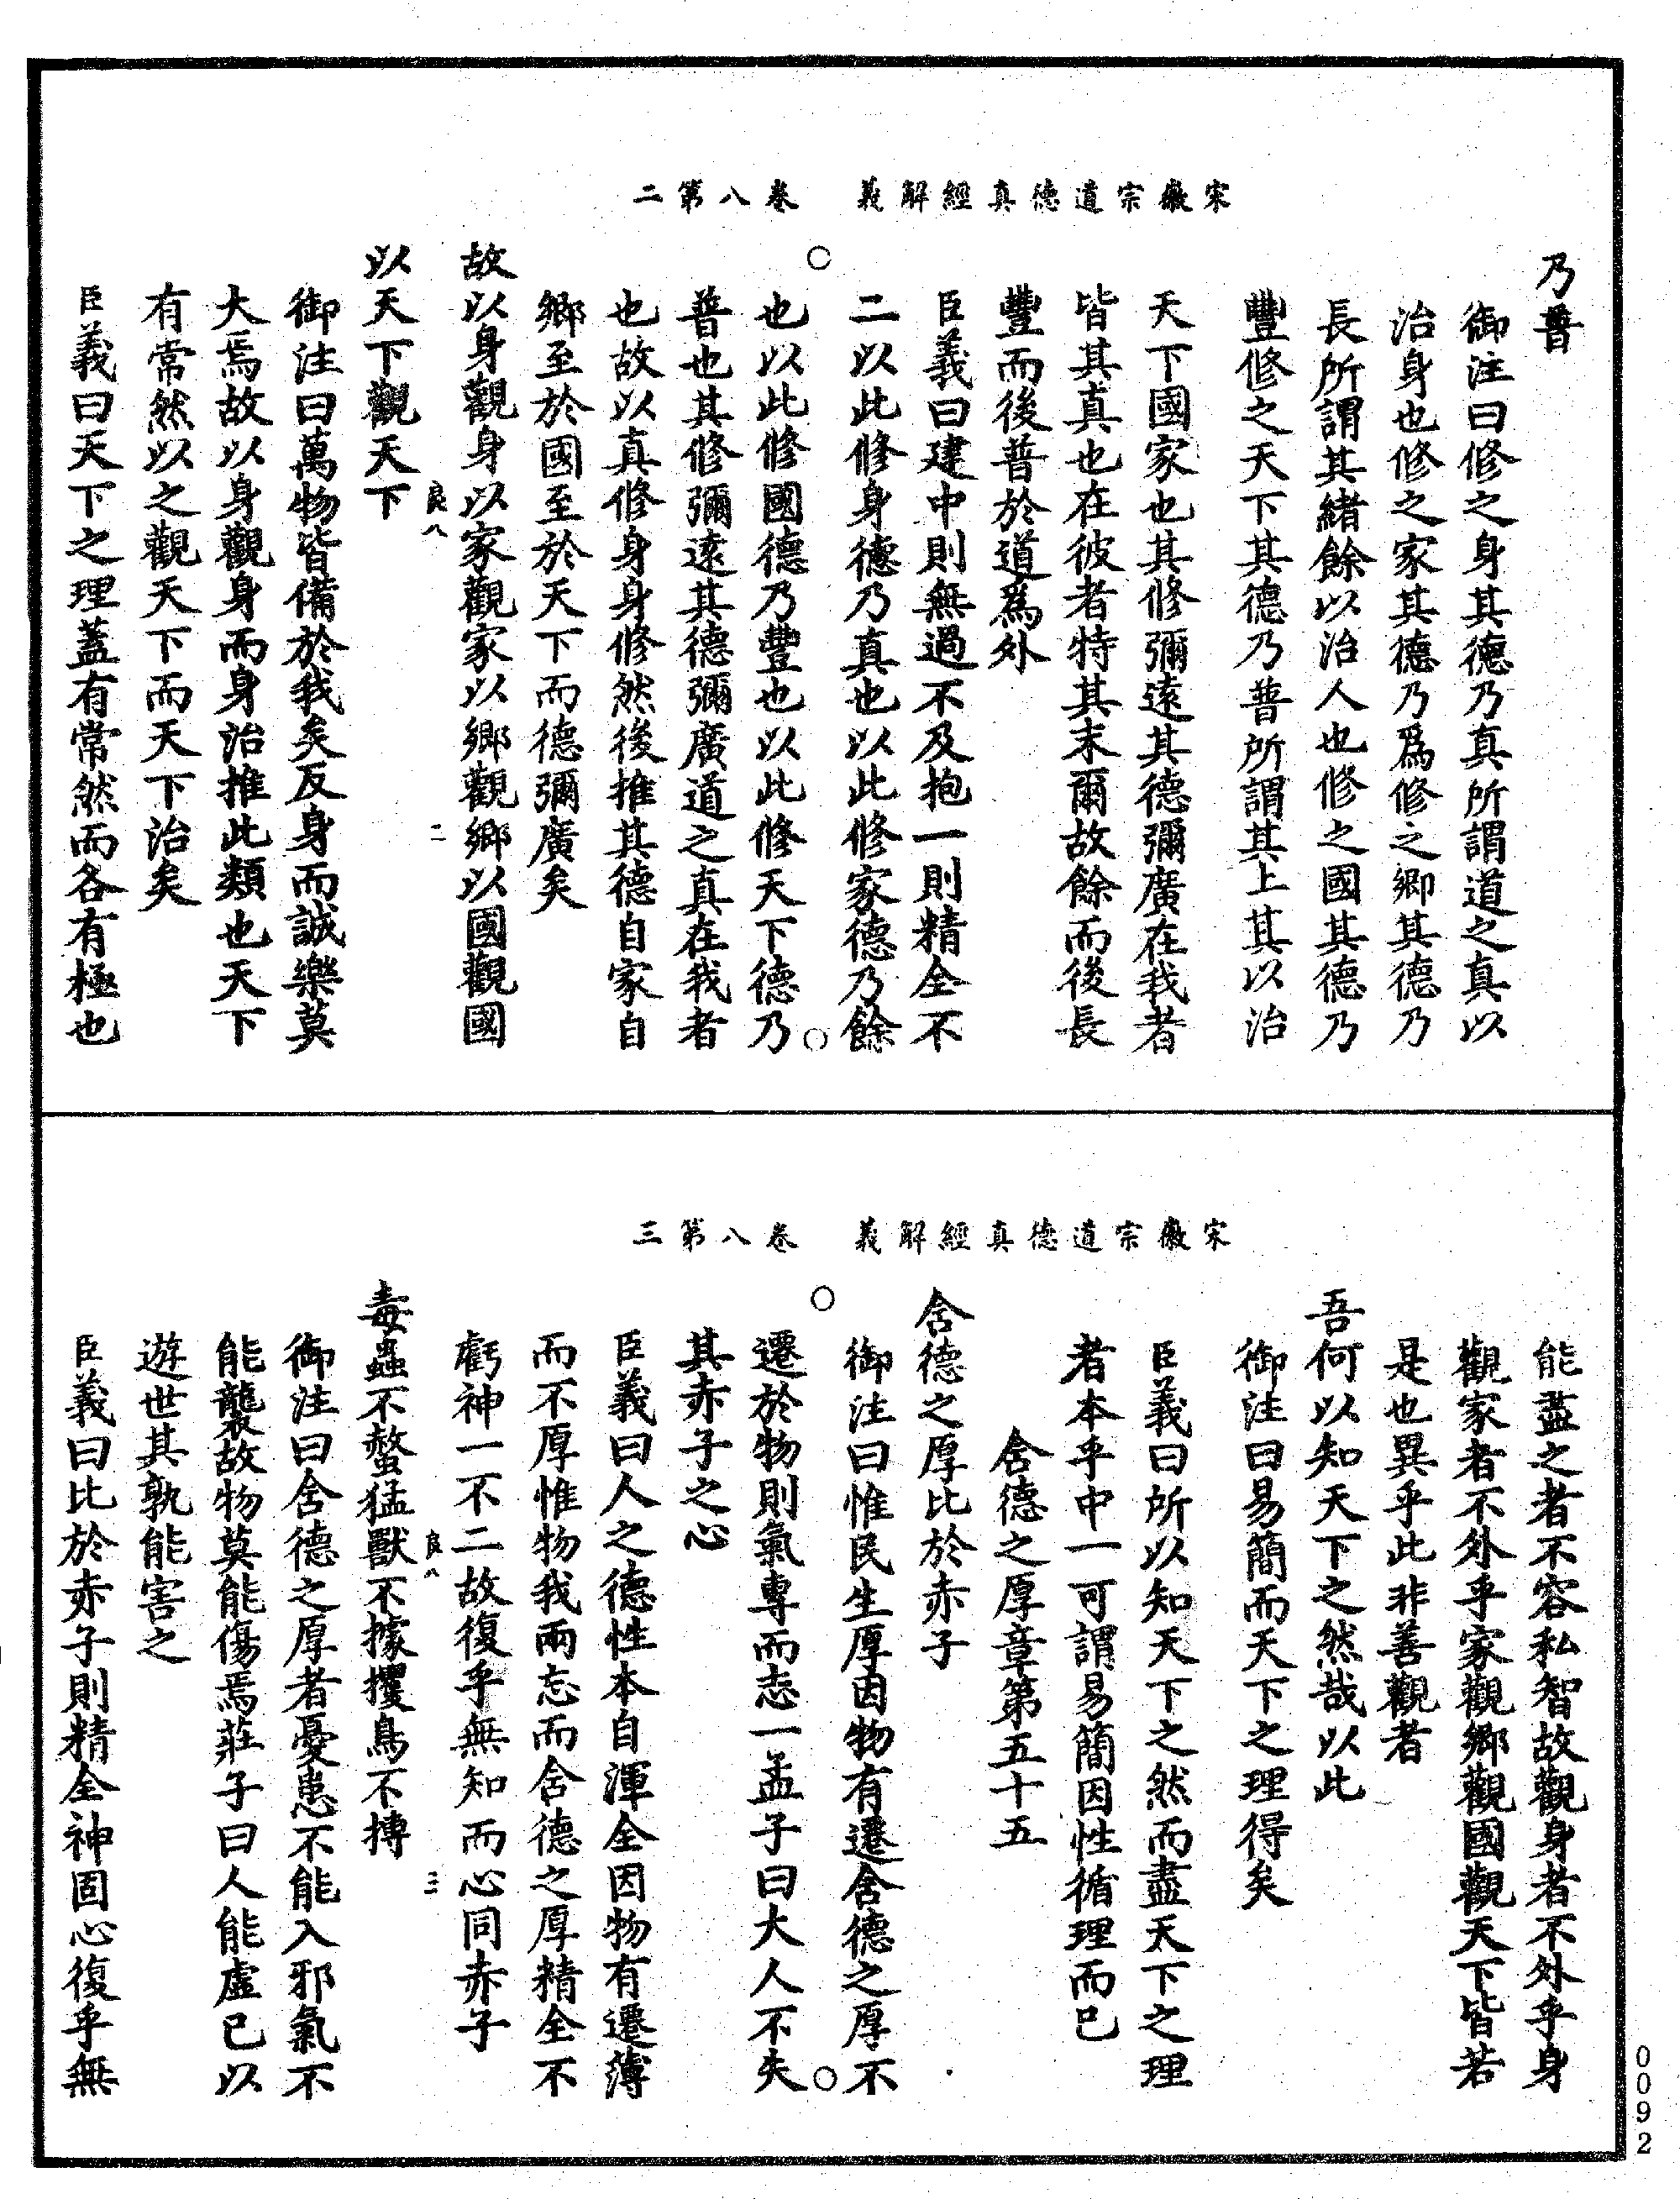 宋徽宗道德真經解義　卷八第二
乃普
御注曰修之身其德乃真所謂道之真以
治身也修之家其德乃爲修之鄉其德乃
長所謂其緒餘以治人也修之國其德乃
豐修之天下其德乃普所謂其上其以治
天下國家也其修彌遠其德彌廣在我者
皆其真也在彼者特其末爾故餘而後長
豐而後普於道爲外
臣義曰建中則無過不及抱一則精全不
二以此修身德乃真也以此修家德乃餘
也以此修國德乃豐也以此修天下德乃
普也其修彌遠其德彌廣道之真在我者
也故以真修身身修然後推其德自家自
鄉至於國至於天下而德彌廣矣
故以身觀身以家觀家以鄉觀鄉以國觀國
良八　二
以天下觀天下
御注曰萬物皆備於我矣反身而誠樂莫
大焉故以身觀身而身治推此類也天下
有常然以之觀天下而天下治矣
臣義曰天下之理蓋有常然而各有極也
宋徽宗道德真經解義　卷八第三
能盡之者不容私智故觀身者不外乎身
觀家者不外乎家觀鄉觀國觀天下皆若
是也異乎此非善觀者
吾何以知天下之然哉以此
御注曰易簡而天下之理得矣
臣義曰所以知天下之然而盡天下之理
者本乎中一可謂易簡因性循理而已
含德之厚章第五十五
含德之厚比於赤子
御注曰惟民生厚因物有遷含德之厚不
遷於物則氣專而志一孟子曰大人不失
其赤子之心
臣義曰人之德性本自渾全因物有遷薄
而不厚惟物我兩忘而含德之厚精全不
虧神一不二故復乎無知而心同赤子
良八　三
毒蟲不螫猛獸不據攫鳥不搏
御注曰含德之厚者憂患不能入邪氣不
能襲故物莫能傷焉莊子曰人能虛己以
遊世其孰能害之
臣義曰比於赤子則精全神固心復乎無
0092